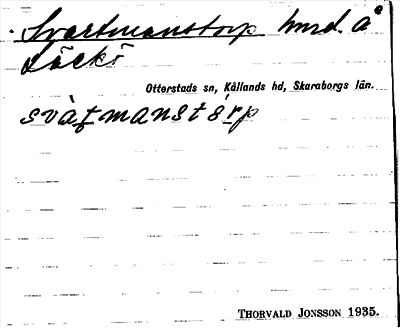 Svartmanstorp hmd. å
Läckö
Otterstads sn, Kållands hd, Skaraborgs län.
svàʈmanstó̱rp
THORVALD JONSSON 1935.